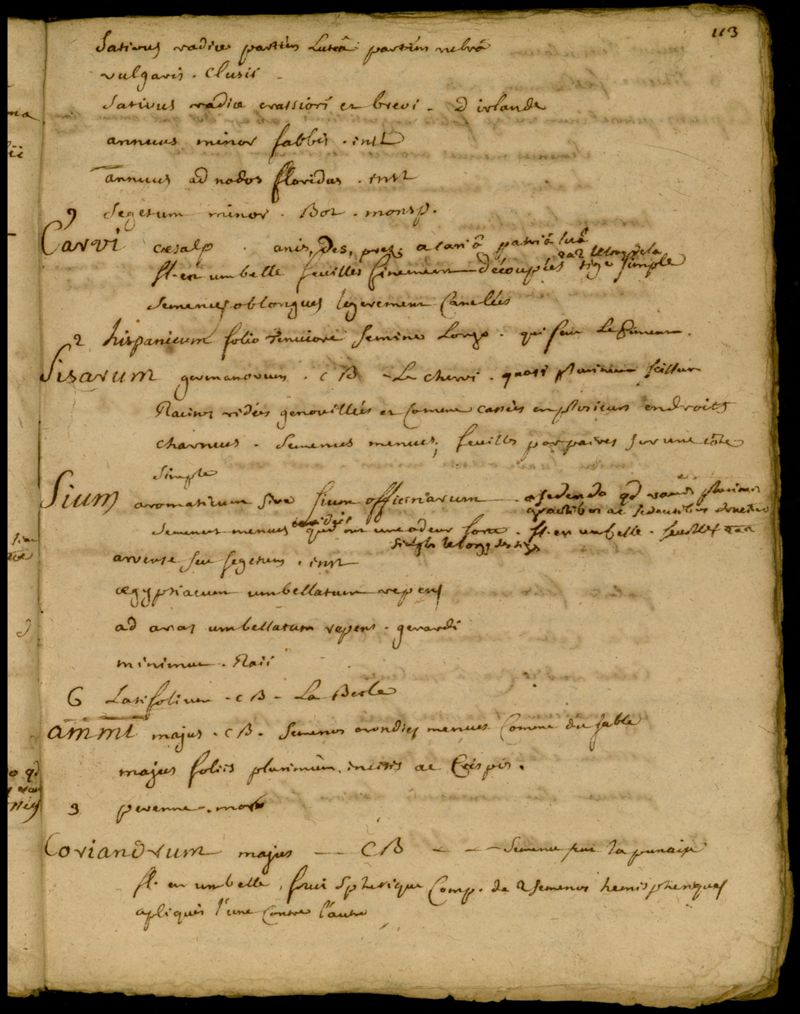 113
Sativus radice partim Luteâ partim rubrâ
vulgaris . Clusii
Sativus radice crassiori et brevi . D irlande
annuus minor fabbis . inst
annuus ad nodos floridus . inst
9 Segetum minor . Bot . monsp.
Carvi cæsalp . anis, Des, prez, a cariâ patriâ suâ
fl. en umbelle feuilles finement découples tige simple
Semences oblongues legerement Canelées
2 hispanicum folio tenuiori semine Longo . qui sent Le
Sisarum germanorum . CB - Le chervi .
Racines ridées genouillées et comme cassées en plusieurs endroits
charnues . Semences menues, feuilles par paires sur une côte
Simple
Sium aromaticum sive sium officinarum
Semences menues qui ont une odeur forte . fl. en umbelle .
arvense seu segetum . inst
ægyptiacum umbellatum repens
ad aras umbellatum repens . gerardi
minimum . Raii
6 Latifolium . CB - La Berle
ammi majus . CB . Semences arondies menues Comme du sable
majus foliis plurimum incisis ac Crispis .
3 perenne . mor
Coriandrum majus — CB - - - Semence pue la punaise
fl. en umbelle, fruit Spherique Comp. de 2 Semences hemispheriques
apliqués l'une Contre l'autre